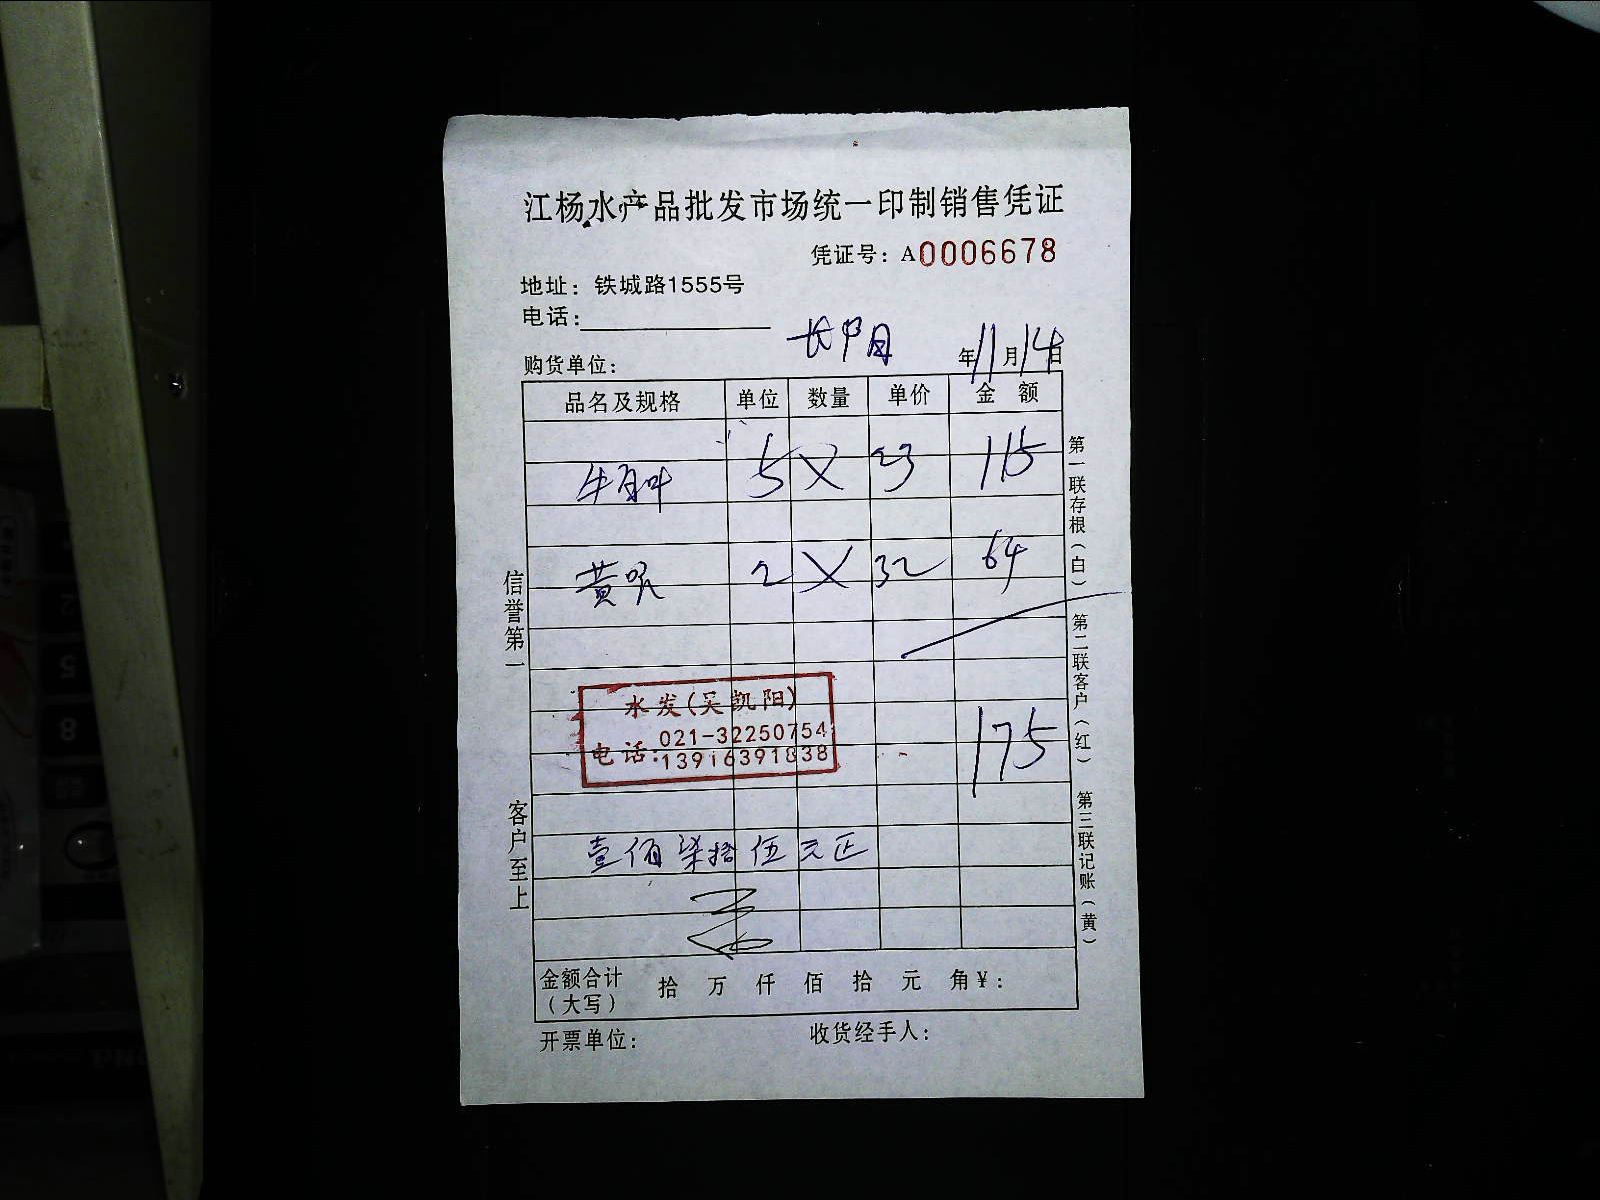 江杨水产品批发市场统一印制销售凭证
凭证号：A0006678
地址：铁城路1555号
电话：
购货单位： 年11月14日
品名及规格 单位 数量 单价 金额
5 X 23 115
黄 2 X 32 64
水发(吴凯阳)
电话：021-32250754
13916391838
175
壹佰柒拾伍元正
金额合计（大写） 拾 万 仟 佰 拾 元 角￥：
开票单位： 收货经手人：
信誉第一
客户至上
第一联存根（白）
第二联客户（红）
第三联记账（黄）